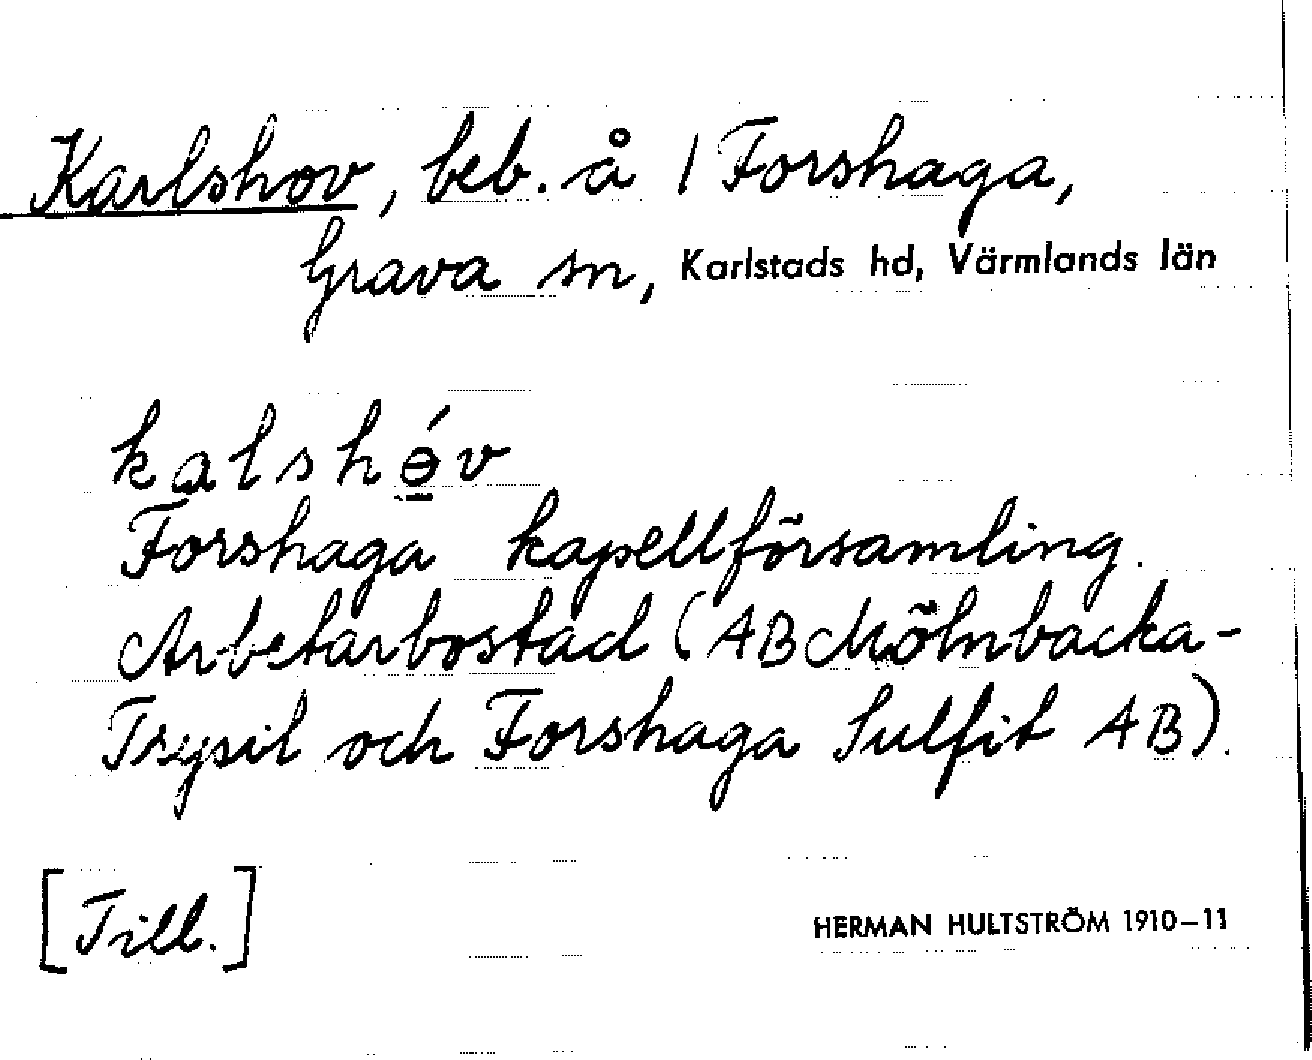 Karlshov, beb. å 1 Forshaga,
Grava sn, Karlstads hd, Värmlands län
kalshə́v
Forshaga kapellförsamling.
Arbetarbostad (AB Mölnbacka-
Trysil och Forshaga Sulfit AB).
[Till.]
HERMAN HULTSTRÖM 1910–11